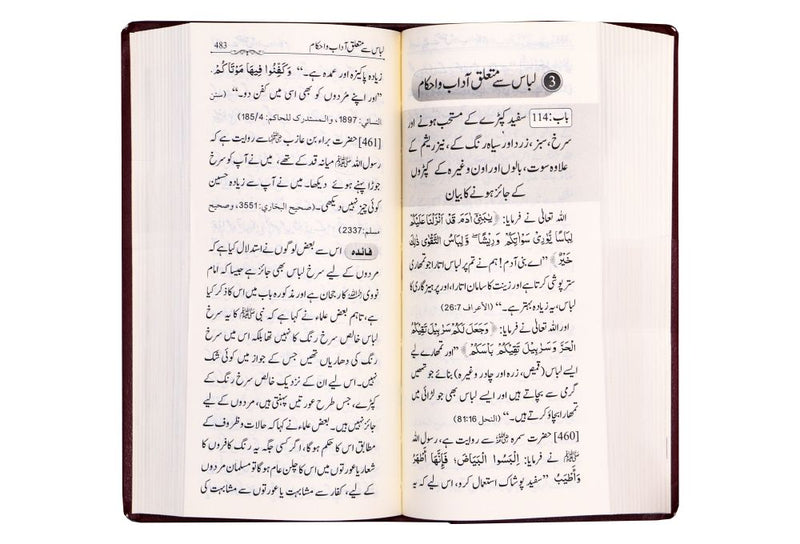 3 لباس سے متعلق آداب و احکام
باب: 114 سفید کپڑے کے مستحب ہونے اور
سرخ، سبز، زرد اور سیاہ رنگ کے، نیز ریشم کے
علاوہ سوت، بالوں اور اون وغیرہ کے کپڑوں
کے جائز ہونے کا بیان
اللہ تعالیٰ نے فرمایا: ﴿يٰبَنِيْٓ اٰدَمَ قَدْ اَنْزَلْنَا عَلَيْكُمْ
لِبَاسًا يُّوَارِيْ سَوْاٰتِكُمْ وَرِيْشًا ۭ وَلِبَاسُ التَّقْوٰى ذٰلِكَ
خَيْرٌ﴾ ”اے بنی آدم! ہم نے تم پر لباس اتارا جو تمہاری
ستر پوشی کرتا ہے اور زینت کا سامان اتارا، اور پرہیز گاری کا
لباس، یہ زیادہ بہتر ہے۔“ (الأعراف 26:7)
اور اللہ تعالیٰ نے فرمایا: ﴿وَجَعَلَ لَكُمْ سَرَابِيْلَ تَقِيْكُمُ
الْحَرَّ وَسَرَابِيْلَ تَقِيْكُمْ بَاْسَكُمْ﴾ ”اور تمھارے لیے
ایسے لباس (قمیص، زرہ اور چادر وغیرہ) بنائے جو تمھیں
گرمی سے بچاتے ہیں اور ایسے لباس بھی جو لڑائی میں
تمھارا بچاؤ کرتے ہیں۔“ (النحل 81:16)
[460] حضرت سمرہ رضی اللہ عنہ سے روایت ہے، رسول اللہ
ﷺ نے فرمایا: اِلْبَسُوا الْبَيَاضَ؛ فَإِنَّهَا أَطْهَرُ
وَأَطْيَبُ ”سفید پوشاک استعمال کرو، اس لیے کہ یہ
لباس سے متعلق آداب و احکام 483
زیادہ پاکیزہ اور عمدہ ہے۔“ وَكَفِّنُوا فِيهَا مَوْتَاكُمْ.
”اور اپنے مردوں کو بھی اسی میں کفن دو۔“ (سنن
النسائي: 1897، والمستدرك للحاكم: 185/4)
[461] حضرت براء بن عازب رضی اللہ عنہ سے روایت ہے کہ
رسول اللہ ﷺ میانہ قد کے تھے، میں نے آپ کو سرخ
جوڑا پہنے ہوئے دیکھا۔ میں نے آپ سے زیادہ حسین
کوئی چیز نہیں دیکھی۔ (صحيح البخاري: 3551، وصحيح
مسلم: 2337)
فائدہ اس سے بعض لوگوں نے استدلال کیا ہے کہ
مردوں کے لیے سرخ لباس بھی جائز ہے جیسا کہ امام
نووی رحمہ اللہ کا رجحان ہے اور مذکورہ باب میں اس کا ذکر کیا
ہے، تاہم بعض علماء نے کہا ہے کہ نبی ﷺ کا یہ سرخ
لباس خالص سرخ رنگ کا نہیں تھا بلکہ اس میں سرخ
رنگ کی دھاریاں تھیں جس کے جواز میں کوئی شک
نہیں۔ اس لیے ان کے نزدیک خالص سرخ رنگ کے
کپڑے، جس طرح عورتیں پہنتی ہیں، مردوں کے لیے
جائز نہیں ہیں۔ بعض علماء نے کہا کہ حالات و ظروف کے
مطابق اس کا حکم ہو گا، اگر کسی جگہ یہ رنگ کافروں کا
شعار یا عورتوں میں اس کا چلن عام ہو گا تو مسلمان مردوں
کے لیے، کفار سے مشابہت یا عورتوں سے مشابہت کی